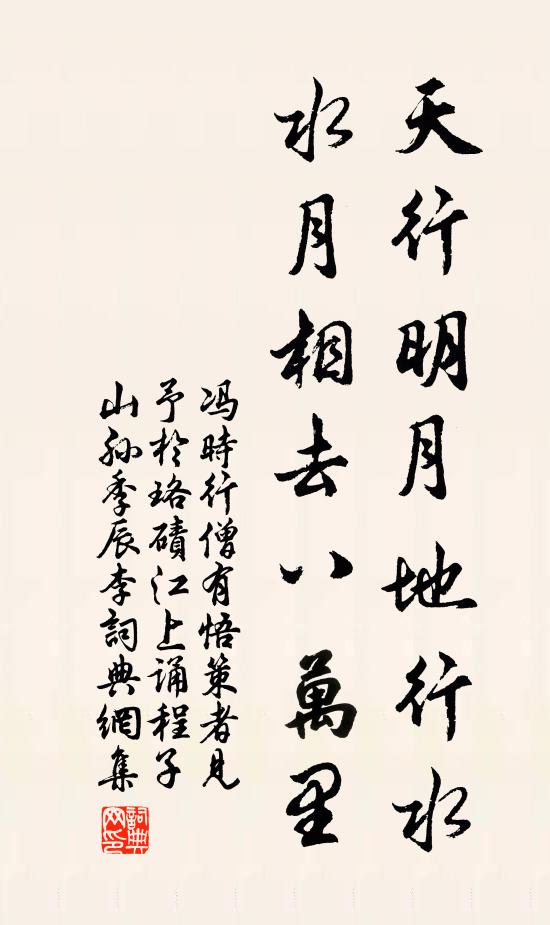 天行明月地行水
水月相去八萬里
冯時行僧有悟策者見
予於珞磧江上誦程子
山孙季辰李詞典網集
詞典網印